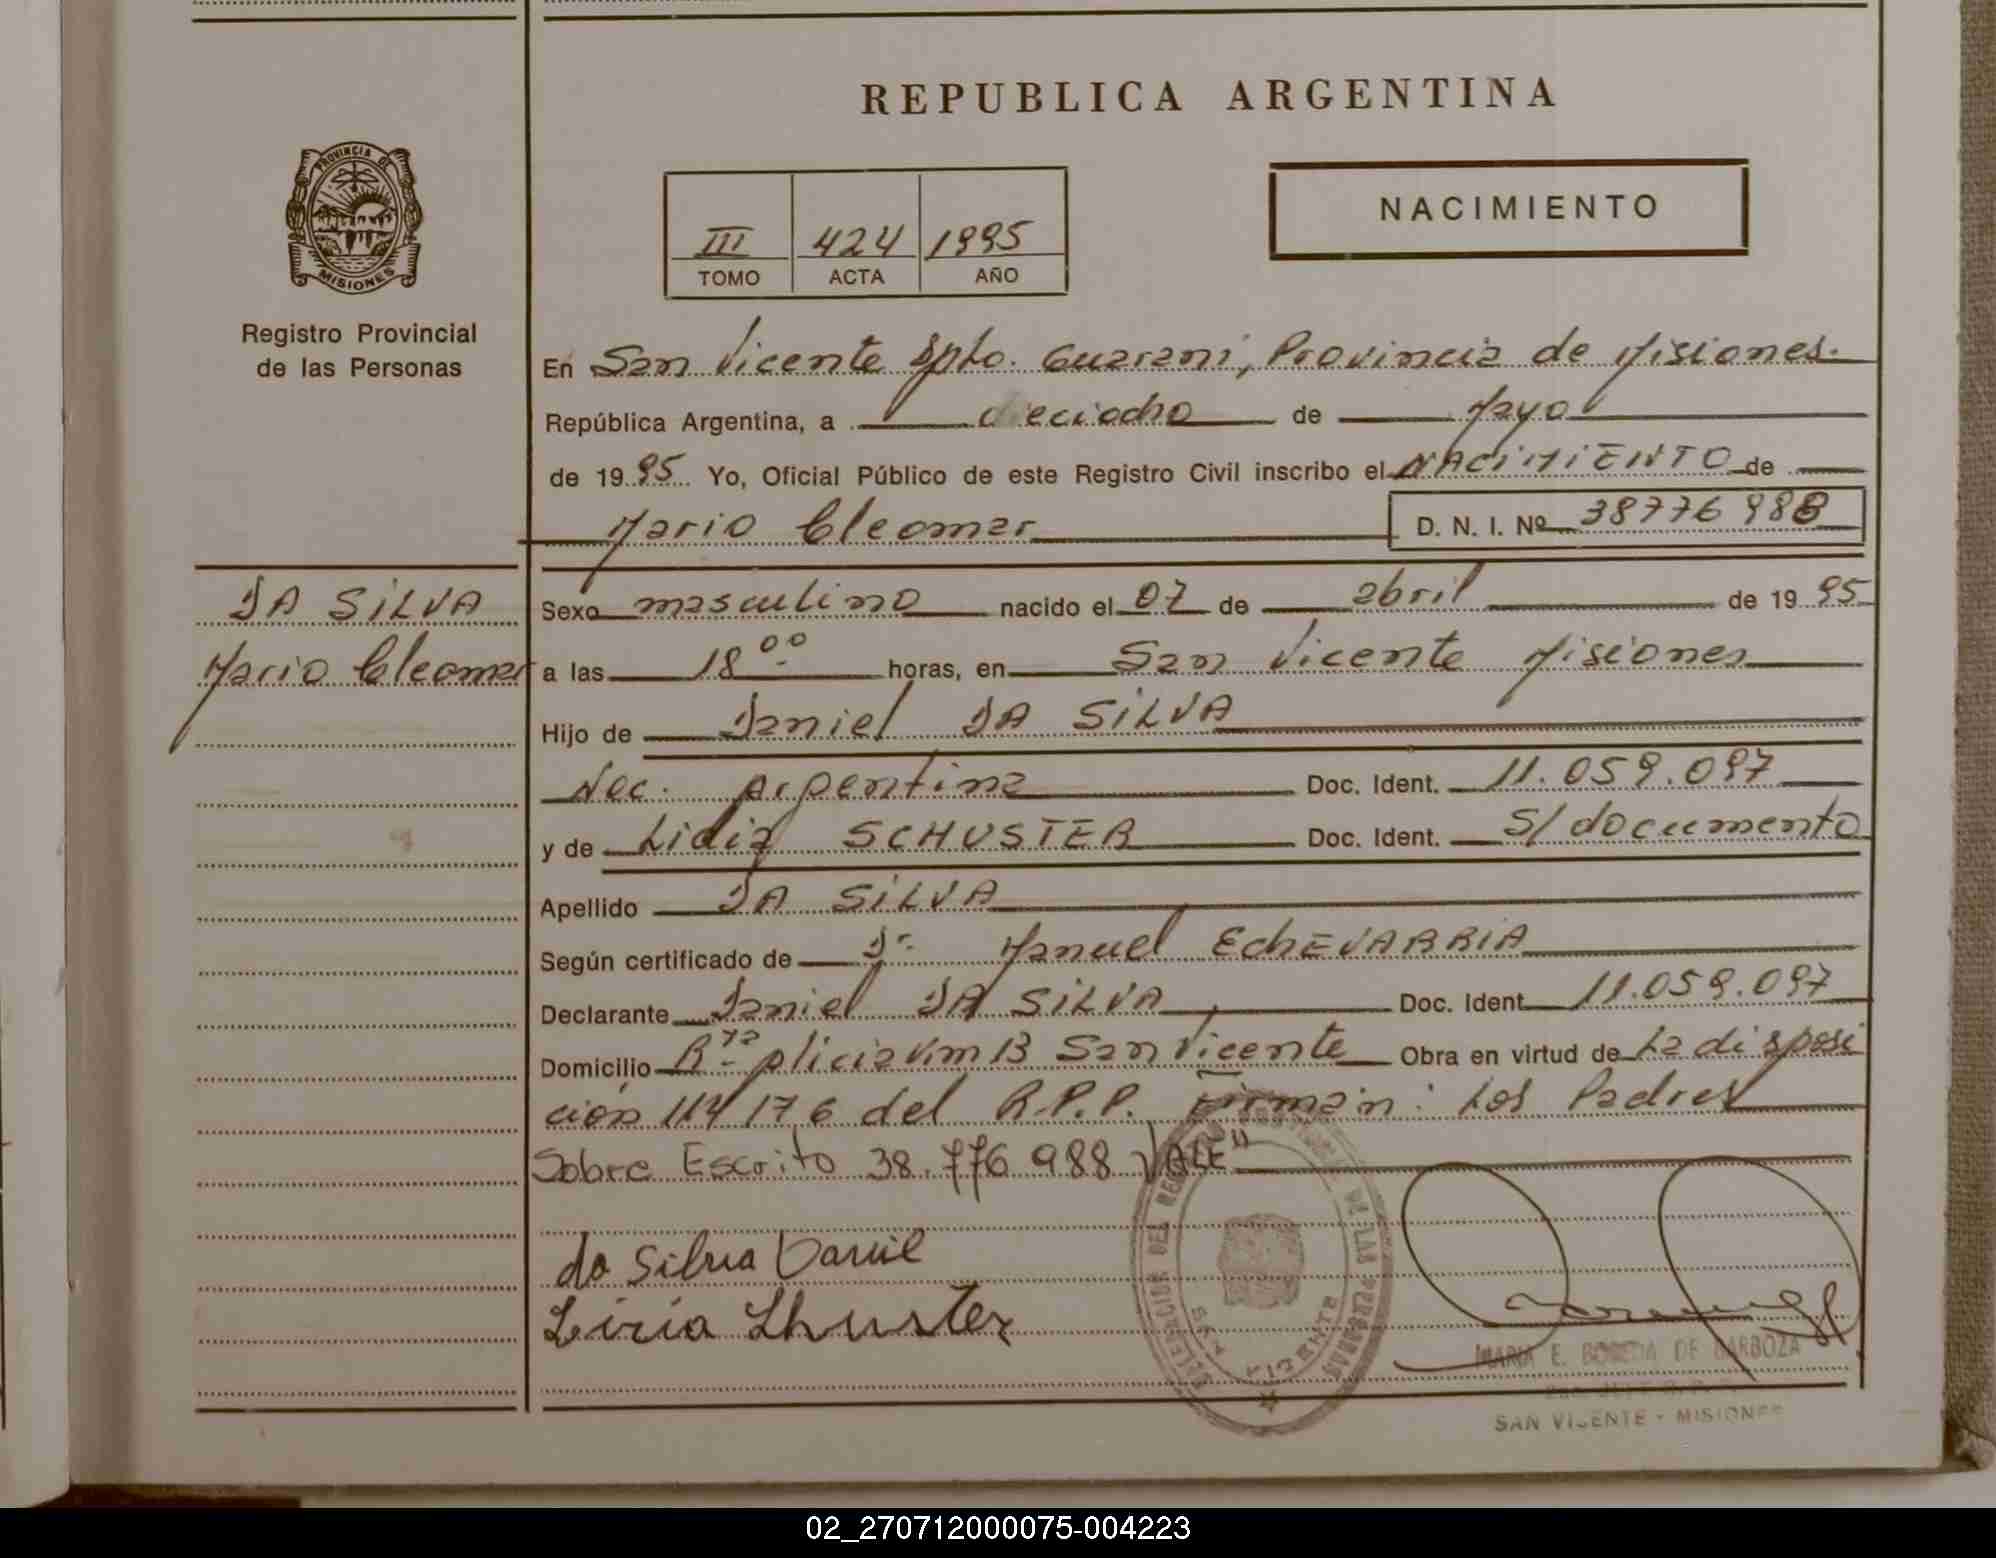 REPUBLICA ARGENTINA
PROVINCIA DE
MISIONES
Registro Provincial
de las Personas
III 424 1995
TOMO ACTA AÑO
NACIMIENTO
En San Vicente Dpto. Guarani, Provincia de Misiones.
República Argentina, a dieciocho de Mayo
de 1995 Yo, Oficial Público de este Registro Civil inscribo el NACIMIENTO de
Mario Cleomar D. N. I. Nº 38776988
DA SILVA
Mario Cleomar
Sexo masculino nacido el 07 de abril de 1995
a las 18 00 horas, en San Vicente Misiones
Hijo de Daniel DA SILVA
Nac. Argentina Doc. Ident. 11.059.097
y de Lidia SCHUSTER Doc. Ident. S/documento
Apellido DA SILVA
Según certificado de Dr. Manuel ECHEVARRIA
Declarante Daniel DA SILVA Doc. Ident. 11.059.097
Domicilio San Vicente Obra en virtud de La disposi
ción 114/76 del R.P.P. Firman: Los Padres
Sobre Escrito 38.776 988 VALE"
da Silva Daniel
Liria Shuster
DEL REGISTRO DE LAS PERSONAS
SAN VICENTE
MARIA E. DE BARBOZA
SAN VICENTE - MISIONES
02_270712000075-004223